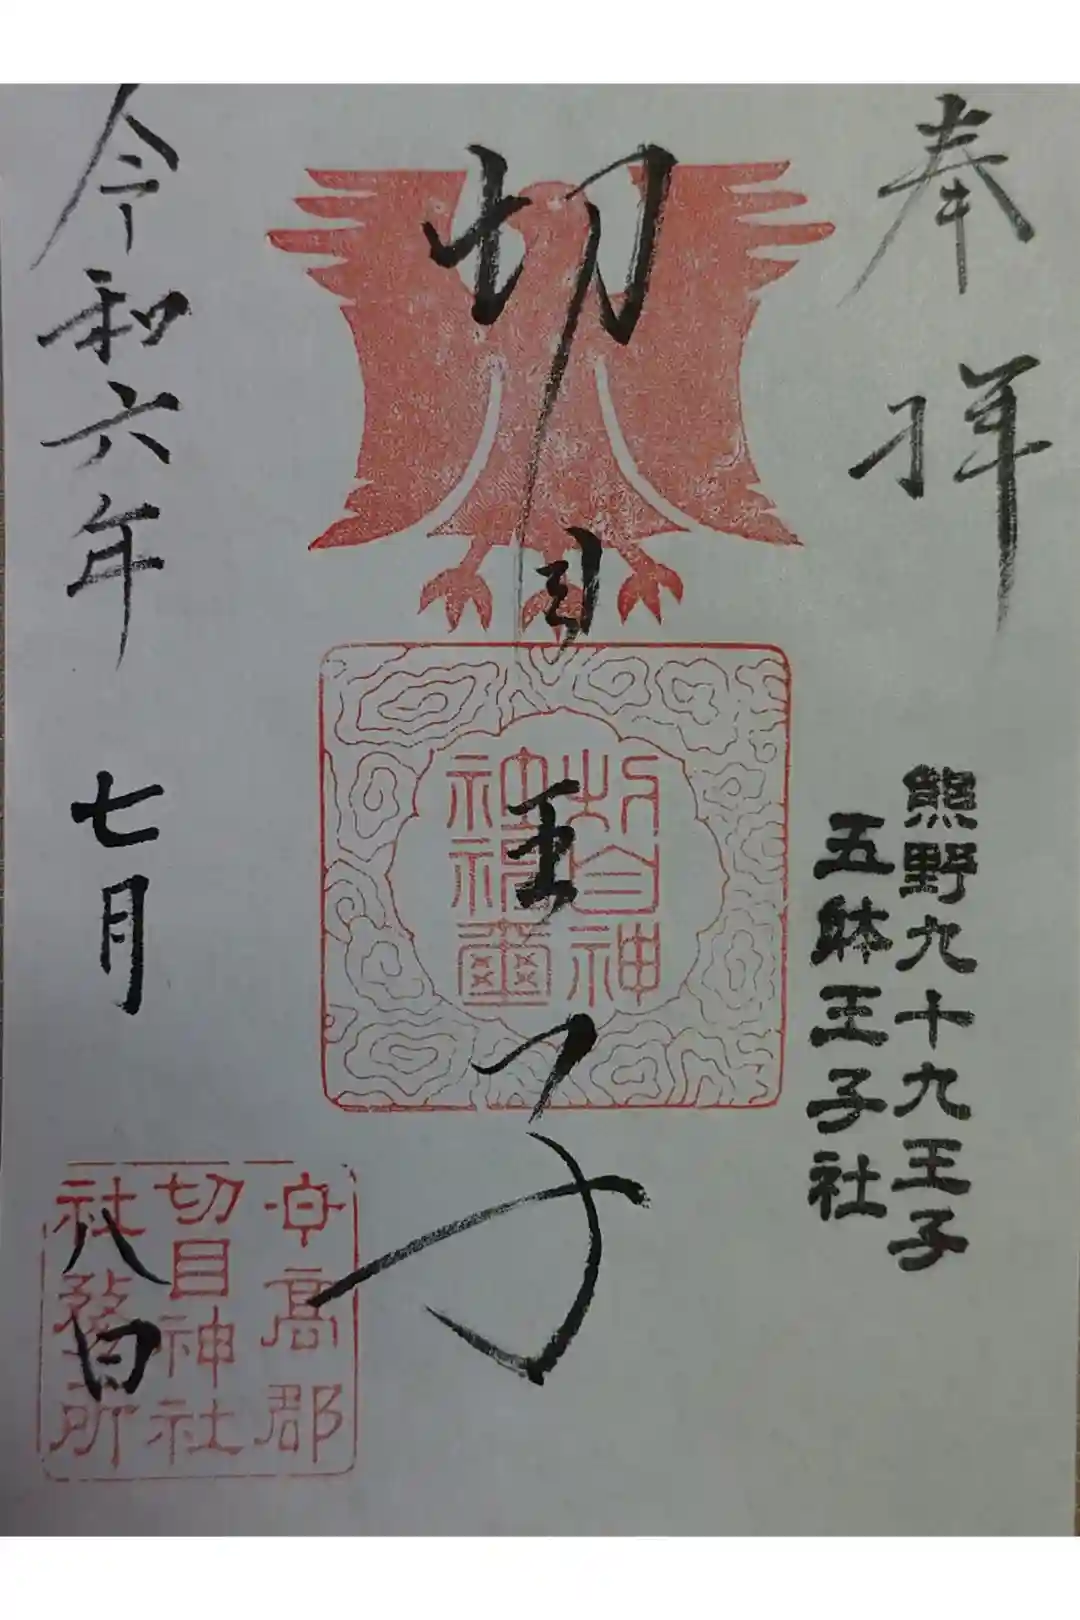 奉拝
熊野九十九王子
五躰王子社
切目王子
切目神
神祠璽
令和六年
七月
八日
日高郡
切目神社
社務所